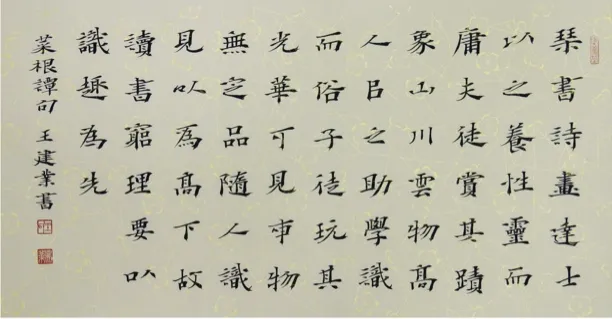 琹書詩畫達士
以之養性靈而
庸夫徒賞其蹟
象山川雲物高
人㠯之助學識
而俗子徒玩其
光華可見事物
無定品隨人識
見以為高下故
讀書窮理要以
識趣為先
菜根譚句 王建業書